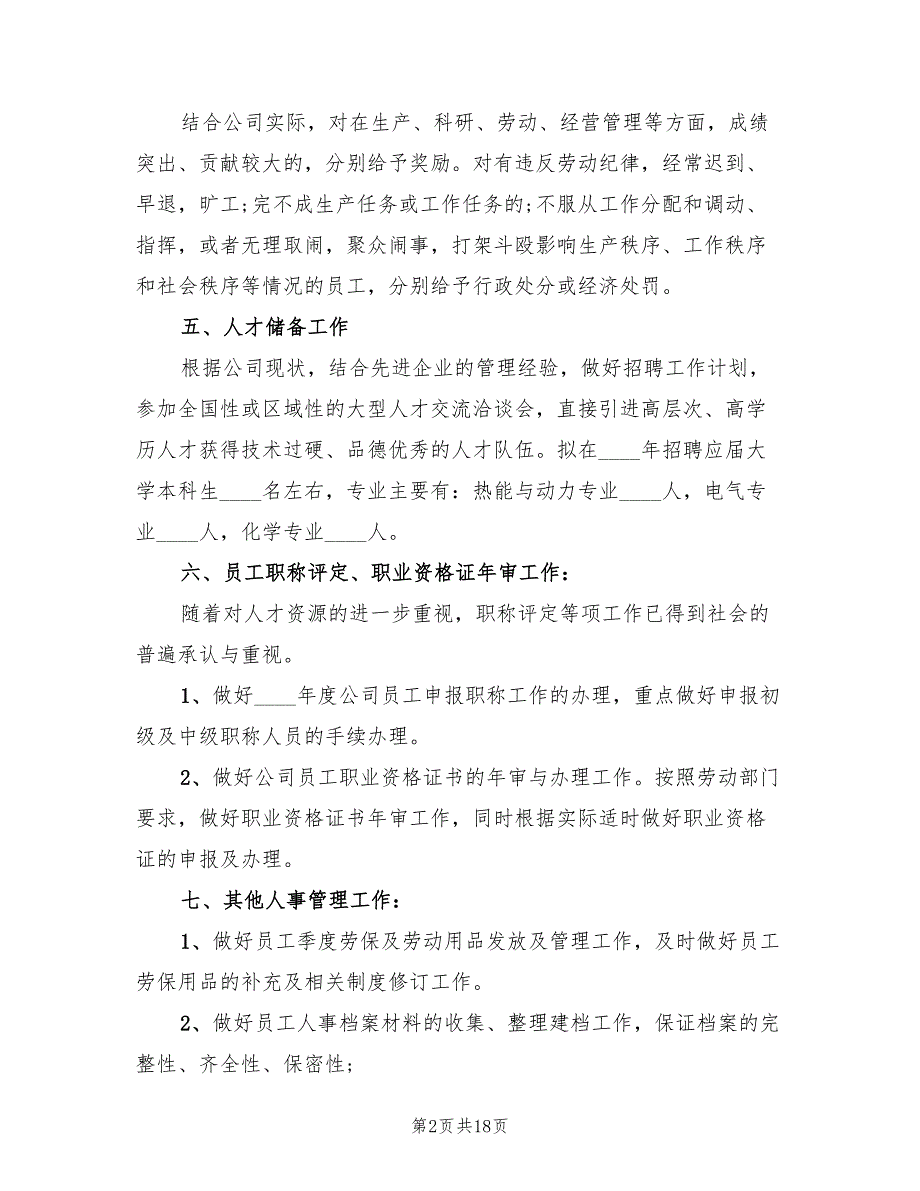 结合公司实际，对在生产、科研、劳动、经营管理等方面，成绩
突出、贡献较大的，分别给予奖励。对有违反劳动纪律，经常迟到、
早退，旷工;完不成生产任务或工作任务的;不服从工作分配和调动、
指挥，或者无理取闹，聚众闹事，打架斗殴影响生产秩序、工作秩序
和社会秩序等情况的员工，分别给予行政处分或经济处罚。
五、人才储备工作
根据公司现状，结合先进企业的管理经验，做好招聘工作计划，
参加全国性或区域性的大型人才交流洽谈会，直接引进高层次、高学
历人才获得技术过硬、品德优秀的人才队伍。拟在____年招聘应届大
学本科生____名左右，专业主要有：热能与动力专业____人，电气专
业____人，化学专业____人。
六、员工职称评定、职业资格证年审工作：
随着对人才资源的进一步重视，职称评定等项工作已得到社会的
普遍承认与重视。
1、做好____年度公司员工申报职称工作的办理，重点做好申报初
级及中级职称人员的手续办理。
2、做好公司员工职业资格证书的年审与办理工作。按照劳动部门
要求，做好职业资格证书年审工作，同时根据实际适时做好职业资格
证的申报及办理。
七、其他人事管理工作：
1、做好员工季度劳保及劳动用品发放及管理工作，及时做好员工
劳保用品的补充及相关制度修订工作。
2、做好员工人事档案材料的收集、整理建档工作，保证档案的完
整性、齐全性、保密性;
第2页共18页